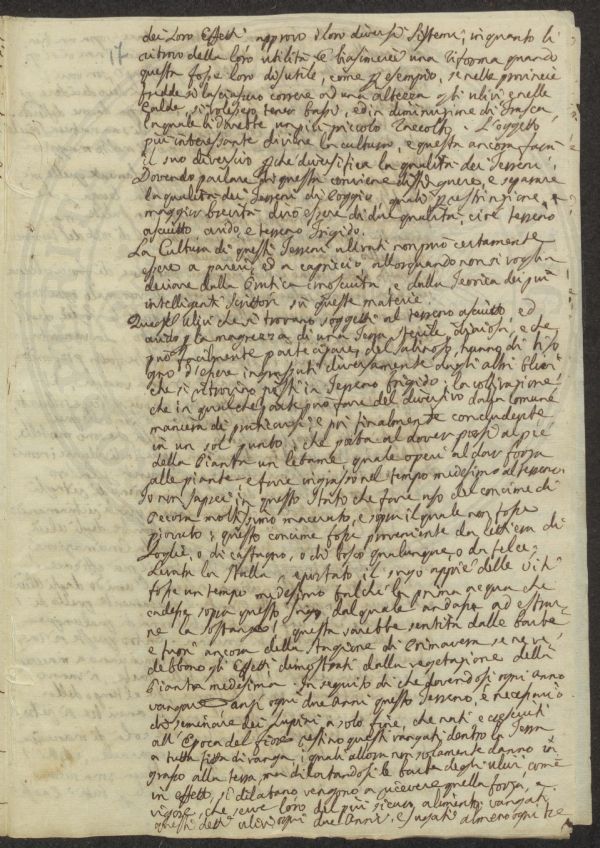 17
dei Loro Effetti approvo i loro diversi sistemi, in quanto li
ritrovo della loro utilità e biasimerei una riforma quando
questa fosse loro disutile, come p esempio, se nelle provincie
fredde si lasciassero correre ad una altezza gli ulivi e nelle
Calde, si volessero tener bassi, ed in diminuzione di frasca,
la quale li darebbe un più piccolo raccolto. L'oggetto
più interessante diviene la cultura, e questa ancora farà
il suo diversivo pche diversifica la qualità dei Terreni.
Dovendo parlare di questa conviene distinguere, e separare
la qualità dei Terreni di Poggio, quali p restrizione, e
maggior brevità dirò essere di due qualità, cioè terreno
asciutto arido, e terreno frigido.
La Cultura di questi Terreni ulivati non può certamente
essere a pareri, ed a capriccio, allorquando non si voglia
deviare dalla Pratica conosciuta, e dalla Teorica dei più
intelligenti Scrittori su queste materie.
Quegl' Ulivi che si trovano soggetti al terreno asciutto, ed
arido p la magrezza di una Terra sterile, ghiaiosa, e che
può facilmente partecipare del sabbioso, hanno di biso
gno d'essere ingrassati diversamente dagli altri Ulivi
che si ritrovino posti in Terreno frigido; la coltivazione
che in qualche parte può fare del diversivo dalla comune
maniera di praticarsi; e poi finalmente concludente
in un sol punto, che porta al dover porsi al piè
della Pianta un letame quale operi al dar forza
alle piante e fare ingrasso nel tempo medesimo al terreno.
Io non saprei in questo stato che fare uso del concime di
Pecora moltissimo macerato, e sopra il quale non fosse
piovuto; questo concime fosse proveniente da lettiera di
foglie, o di castagno, o di bosco qualunque, o da felce.
Levata la stalla, e portato il sugo appiè delle Viti
fosse un tempo medesimo talchè la prima acqua che
cadesse sopra questo sugo dal quale andasse ad estrar
ne la sostanza, questa sarebbe sentita dalle barbe
e fuori ancora della stagione di Primavera se ne ve
debbono gli Effetti dimostrati dalla vegetazione della
Pianta medesima. In seguito di che dovendosi ogni anno
vangare anzi ogni due anni questo Terreno, è necessario
di seminare dei Lupini a solo fine, che nati e cresciuti
all' Epoca del fiore restino questi vangati dentro la Terra
a tutta fitta di vanga, i quali allora non solamente danno in
grasso alla terra, ma dilatandosi le barbe degli ulivi, come
in effetto, si dilatano, vengono a ricevere quella forza, e
vigore, che serve loro del più sicuro alimento; vangati
questi detti ulivi ogni due Anni, e sugati almeno ogni tre